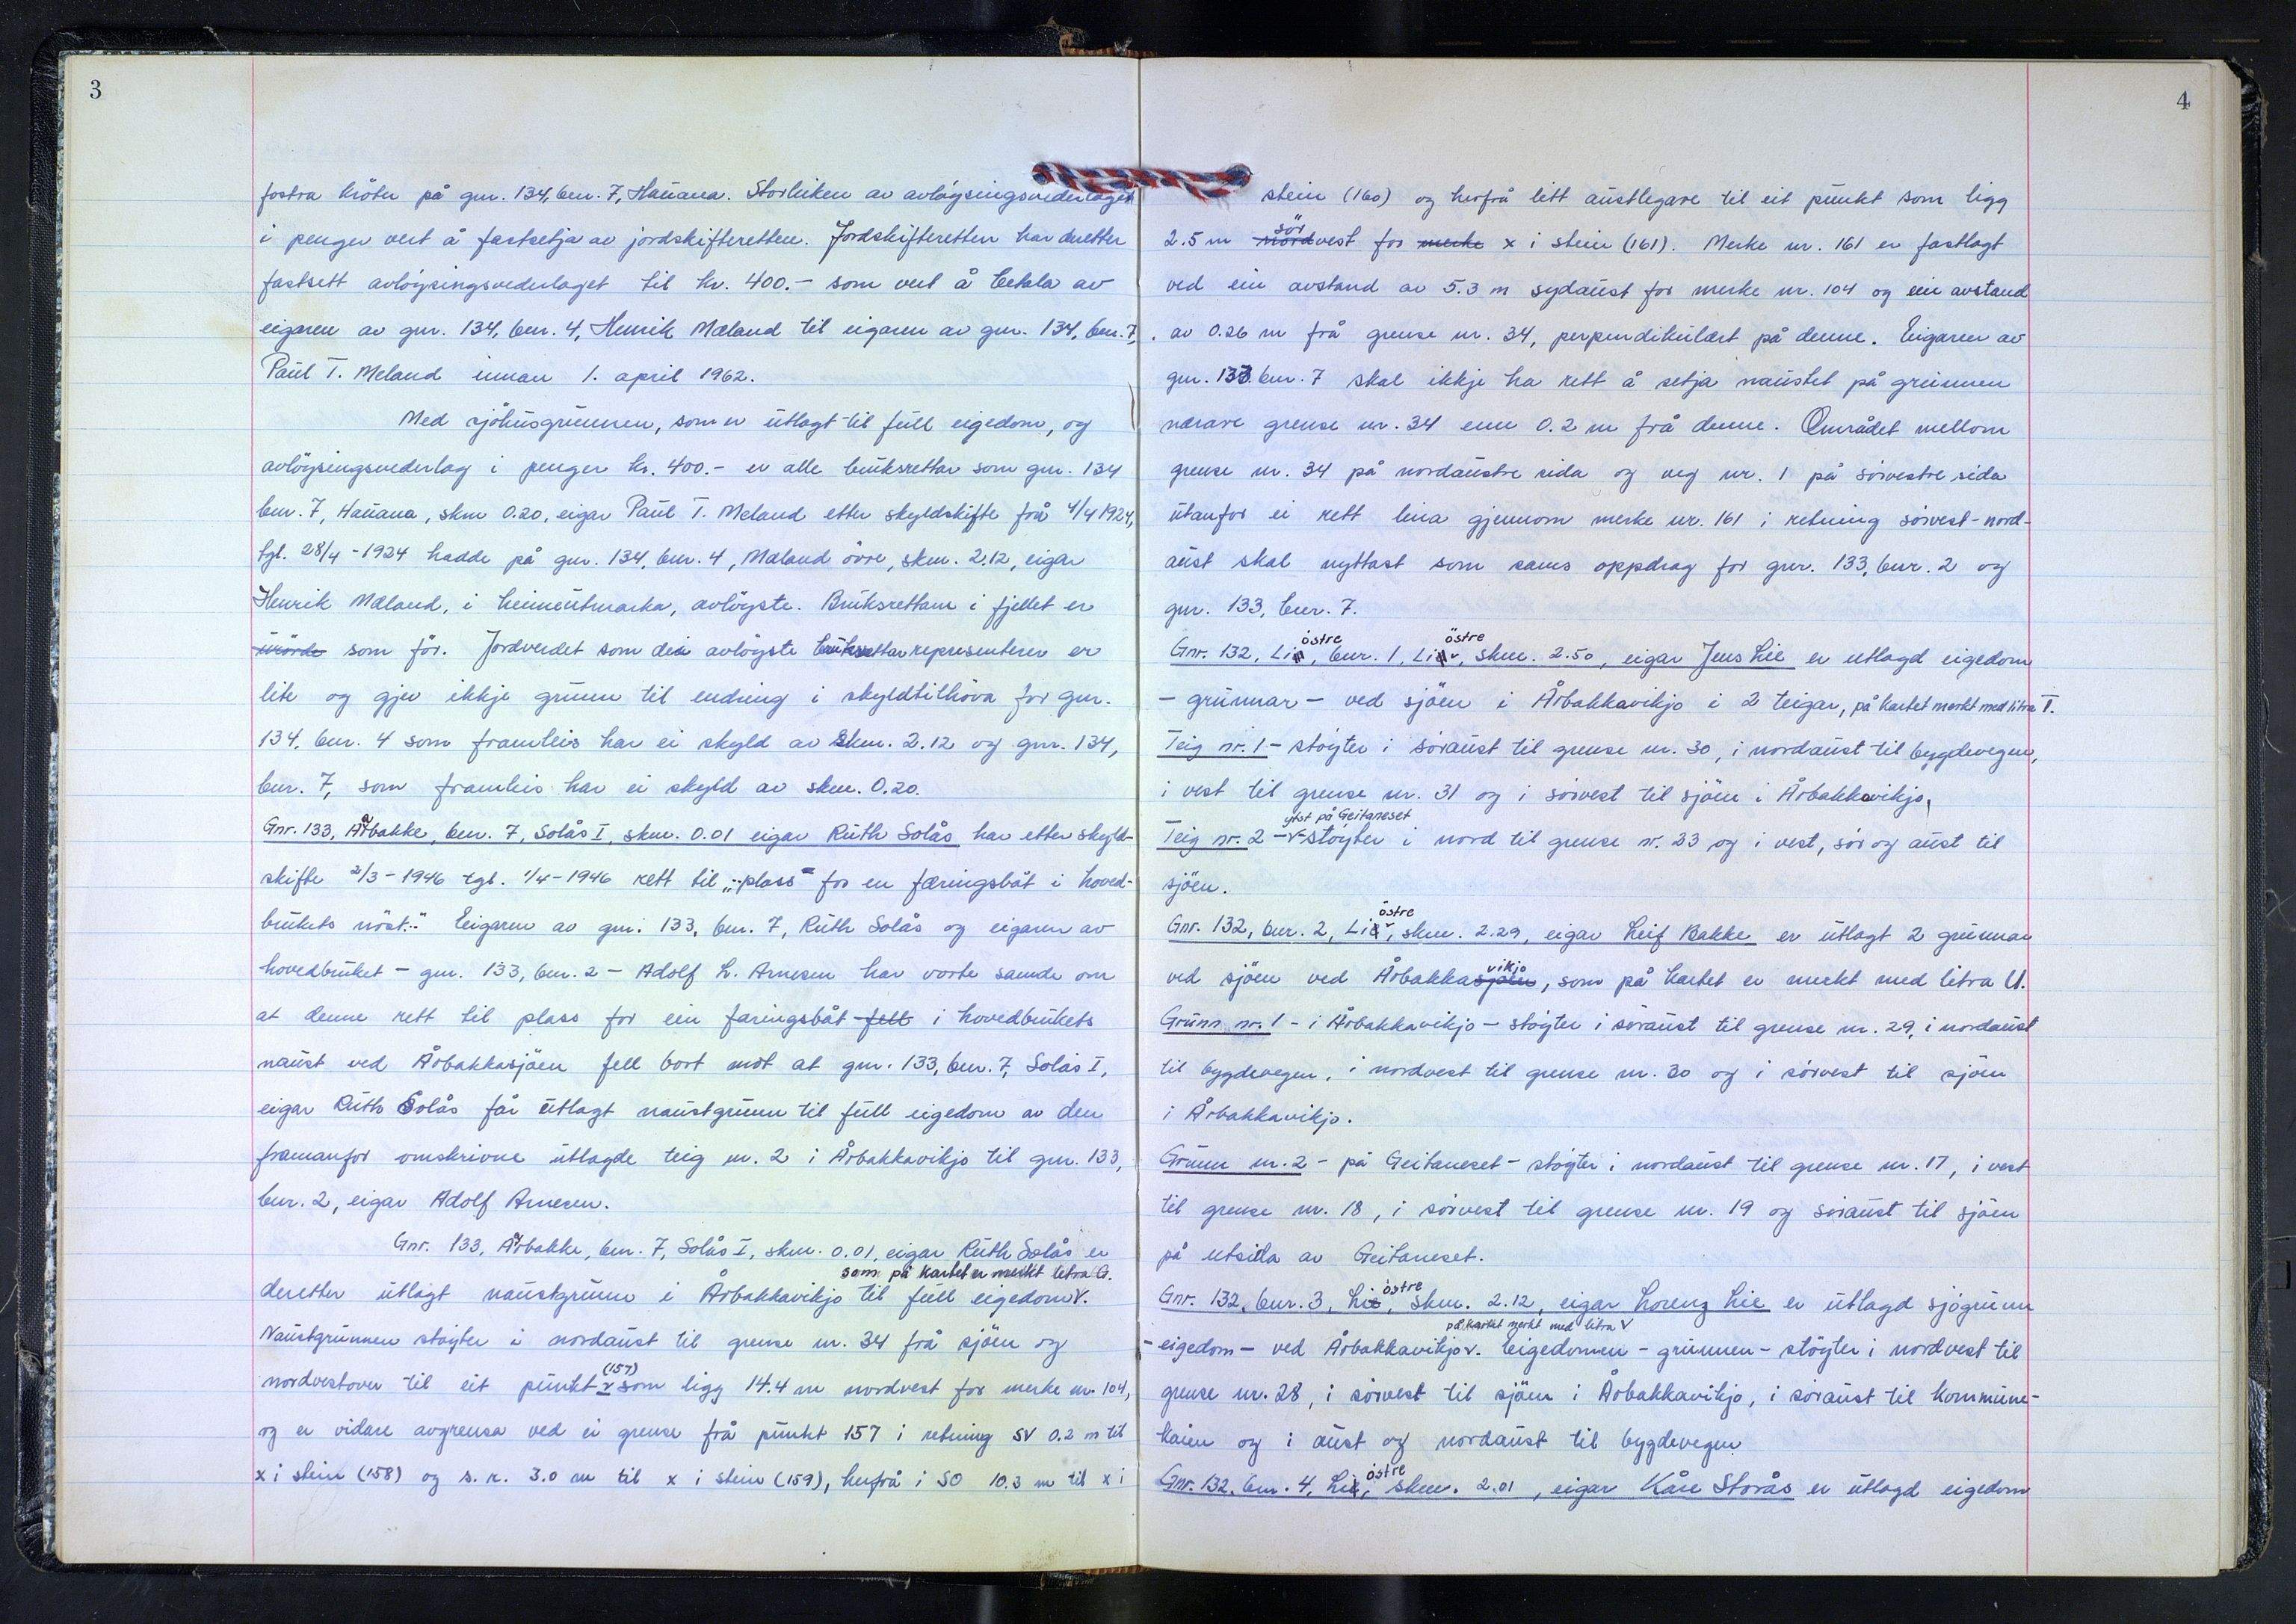 3
fostra krøter på gnr. 134, bnr. 7, Hauana. Storleiken av avløysingsvederlaget
i pengar vert å fastsetja av jordskifteretten. Jordskifteretten har deretter
fastsett avløysingsvederlaget til kr. 400.- som vert å betala av
eigaren av gnr. 134, bnr. 4, Henrik Mæland til eigaren av gnr. 134, bnr. 7,
Paul T. Meland innan 1. april 1962.
Med sjøhusgrunnen, som er utlagt til full eigedom, og
avløysingsvederlag i pengar kr. 400.- er alle bruksrettar som gnr. 134
bnr. 7, Hauana, skm 0.20, eigar Paul T. Meland etter skyldskifte frå 4/4 1924,
tgl. 28/4-1924 hadde på gnr. 134, bnr. 4, Mæland øvre, skm. 2,12, eigar
Henrik Mæland, i heimeutmarka, avløyste. Bruksrettane i fjellet er
urørde som før. Jordverdet som dei avløyste bruksrettar representerer er
lite og gjev ikkje grunn til endring i skyldtilhøva for gnr.
134, bnr. 4 som framleis har ei skyld av skm. 2.12 og gnr. 134,
bnr. 7, som framleis har ei skyld av skm. 0.20.
Gnr. 133, Årbakke, bnr. 7, Solås I, skm. 0.01 eigar Ruth Solås har etter skyld-
skifte 2/3-1946 tgl. 1/4-1946 rett til „-plass" for en færingsbåt i hoved-
brukets nöst.." Eigaren av gnr. 133, bnr. 7, Ruth Solås og eigaren av
hovedbruket - gnr. 133, bnr. 2 - Adolf L. Arnesen har vorte samde om
at denne rett til plass for ein færingsbåt fell i hovedbrukets
naust ved Årbakkasjöen fell bort mot at gnr. 133, bnr. 7, Solås I,
eigar Ruth Solås får utlagt naustgrunn til full eigedom av den
framanfor omskrivne utlagde teig nr. 2 i Årbakkavikjo til gnr. 133,
bnr. 2, eigar Adolf Arnesen.
Gnr. 133, Årbakke, bnr. 7, Solås I, skm. 0.01, eigar Ruth Solås er
som på kartet er merkt litra G.
deretter utlagt naustgrunn i Årbakkavikjo til full eigedom v.
Naustgrunnen støyter i nordaust til grense nr. 34 frå sjöen og
(157)
nordvestover til eit punkt v som ligg 14.4 m nordvest for merke nr. 104,
og er vidare avgrensa ved ei grense frå punkt 157 i retning SV 0.2 m til
x i stein (158) og s. r. 3.0 m til x i stein (159), herfrå i SO 10.3 m til x i
4
stein (160) og herfrå litt austlegare til eit punkt som ligg
sör
2.5 m nordvest for merke x i stein (161). Merke nr. 161 er fastlagt
ved ein avstand av 5.3 m sydaust for merke nr. 104 og ein avstand
av 0.26 m frå grense nr. 34, perpendikulært på denne. Eigaren av
gnr. 133 bnr. 7 skal ikkje ha rett å setja naustet på grunnen
nærare grense nr. 34 enn 0.2 m frå denne. Området mellom
grense nr. 34 på nordaustre sida og veg nr. 1 på sørvestre sida
utanfor ei rett lina gjennom merke nr. 161 i retning sørvest-nord-
aust skal nyttast som sams oppdrag for gnr. 133, bnr. 2 og
gnr. 133, bnr. 7.
östre östre
Gnr. 132, Li, bnr. 1, Li v, skm. 2.50, eigar Jens Lie er utlagd eigedom
- grunnar - ved sjöen i Årbakkavikjo i 2 teigar, på kartet merkt med litra T.
Teig nr. 1 - støyter i søraust til grense nr. 30, i nordaust til bygdevegen,
i vest til grense nr. 31 og i sørvest til sjöen i Årbakkavikjo.
ytst på Geitaneset
Teig nr. 2 - v - støyter i nord til grense nr. 23 og i vest, sør og aust til
sjöen.
östre
Gnr. 132, bnr. 2, Li v, skm. 2.29, eigar Leif Bakke er utlagt 2 grunnar
vikjo
ved sjöen ved Årbakkasjöen, som på kartet er merkt med litra U.
Grunn nr. 1 - i Årbakkavikjo - støyter i søraust til grense nr. 29, i nordaust
til bygdevegen, i nordvest til grense nr. 30 og i sørvest til sjöen
i Årbakkavikjo.
Grunn nr. 2 - på Geitaneset - støyter i nordaust til grense nr. 17, i vest
til grense nr. 18, i sørvest til grense nr. 19 og søraust til sjöen
på utsida av Geitaneset.
östre
Gnr. 132, bnr. 3, Lie, skm. 2.12, eigar Lorenz Lie er utlagd sjøgrunn
på kartet merkt med litra V
- eigedom - ved Årbakkavikjo v. Eigedomen - grunnen - støyter i nordvest til
grense nr. 28, i sørvest til sjöen i Årbakkavikjo, i søraust til kommune-
kaien og i aust og nordaust til bygdevegen
östre
Gnr. 132, bnr. 4, Li, skm. 2.01, eigar Kåre Storås er utlagd eigedom